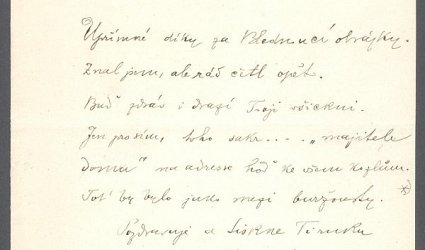 Upřímné díky za obrázky.
Znal jsem, ale rád četl opět.
Buď zdráv i drazí Tvoji všickni.
Jen prosím, toho sakr.... „majitele
domu“ na adresse hoď ke všem kozlům. *)
Toť by bylo jako mezi buržousty.
Pozdravuje a tiskne Ti ruku